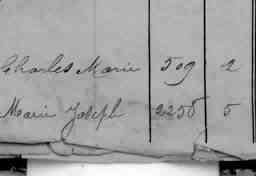 Charles Marie 509 2
Marie Joseph 2258 5